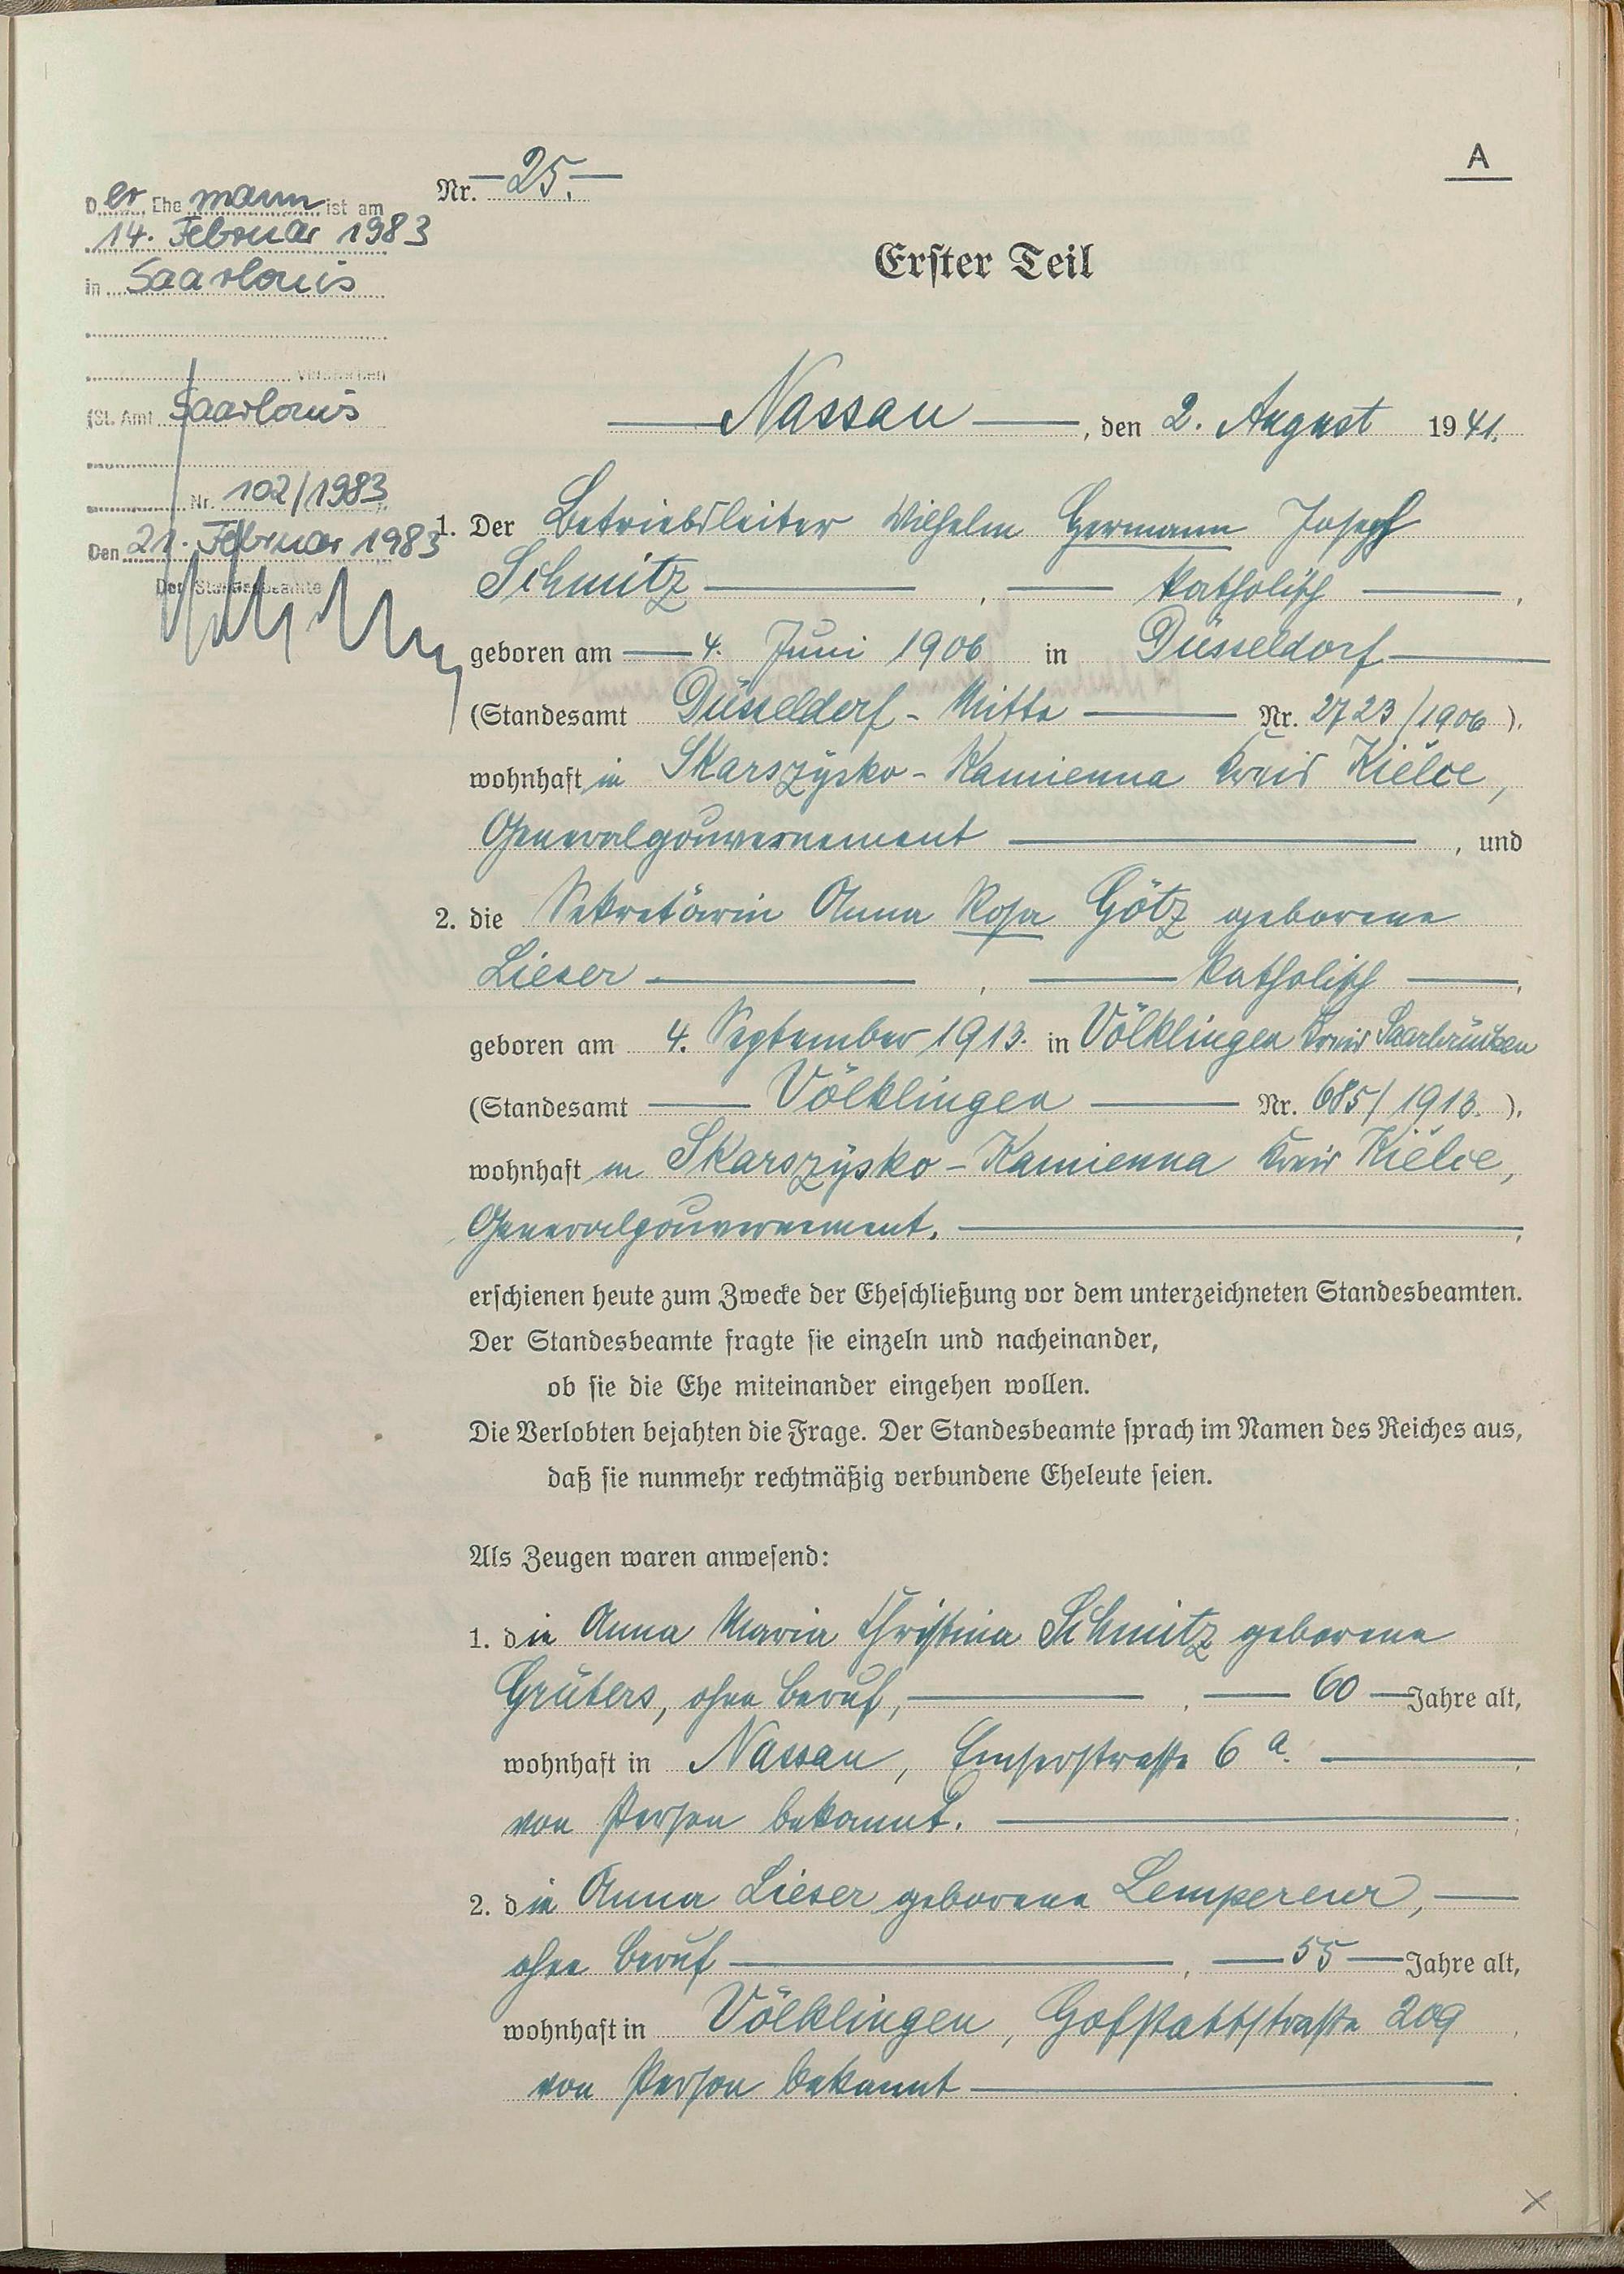 A
Nr. 25.
Erster Teil
Nassau, den 2. August 1941.
Der Ehemann ist am
14. Februar 1983
in Saarlouis
verstorben
(St. Amt Saarlouis
Nr. 102/1983
Den 21. Februar 1983
Der Standesbeamte
1. Der Betriebsleiter Wilhelm Hermann Joseph
Schmitz, katholisch,
geboren am 4. Juni 1906 in Düsseldorf
(Standesamt Düsseldorf-Mitte Nr. 2723/1906).
wohnhaft in Skarszysko-Kamienna Kreis Kielce,
Generalgouvernement, und
2. die Sekretärin Anna Rosa Götz geborene
Lieser, katholisch,
geboren am 4. September 1913. in Völklingen Kreis Saarbrücken
(Standesamt Völklingen Nr. 685/1913.).
wohnhaft in Skarszysko-Kamienna Kreis Kielce,
Generalgouvernement.
erschienen heute zum Zwecke der Eheschließung vor dem unterzeichneten Standesbeamten.
Der Standesbeamte fragte sie einzeln und nacheinander,
ob sie die Ehe miteinander eingehen wollen.
Die Verlobten bejahten die Frage. Der Standesbeamte sprach im Namen des Reiches aus,
daß sie nunmehr rechtmäßig verbundene Eheleute seien.
Als Zeugen waren anwesend:
1. die Anna Maria Christina Schmitz geborene
Grüters, ohne Beruf, 60 Jahre alt,
wohnhaft in Nassau, Emserstraße 6 a.
von Person bekannt.
2. die Anna Lieser geborene Lempereur,
ohne Beruf, 55 Jahre alt,
wohnhaft in Völklingen, Hofstattstraße 209
von Person bekannt